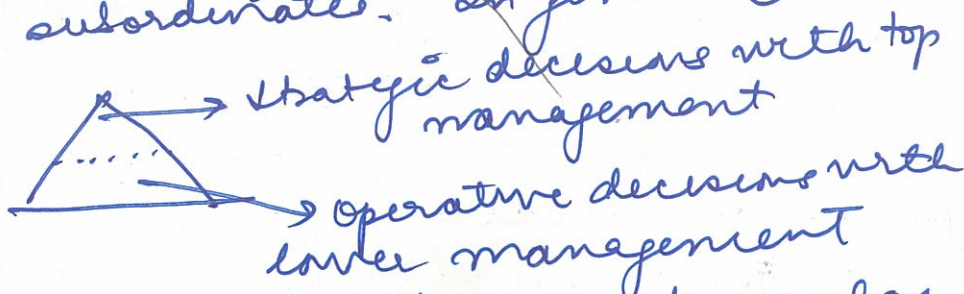 subordinates. In
strategic decisions with top
management
operative decisions with
lower management